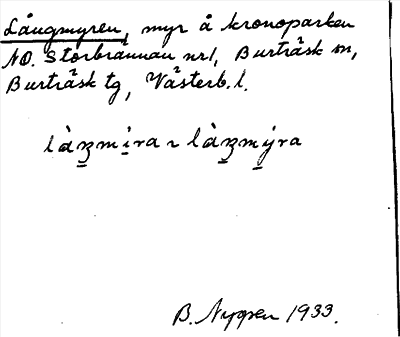 Långmyren, myr å kronoparken
NO. Storbrännan nr 1, Burträsk sn,
Burträsk tg, Västerb. l.
làŋmira ~ làŋmýra
B. Nygren 1933.